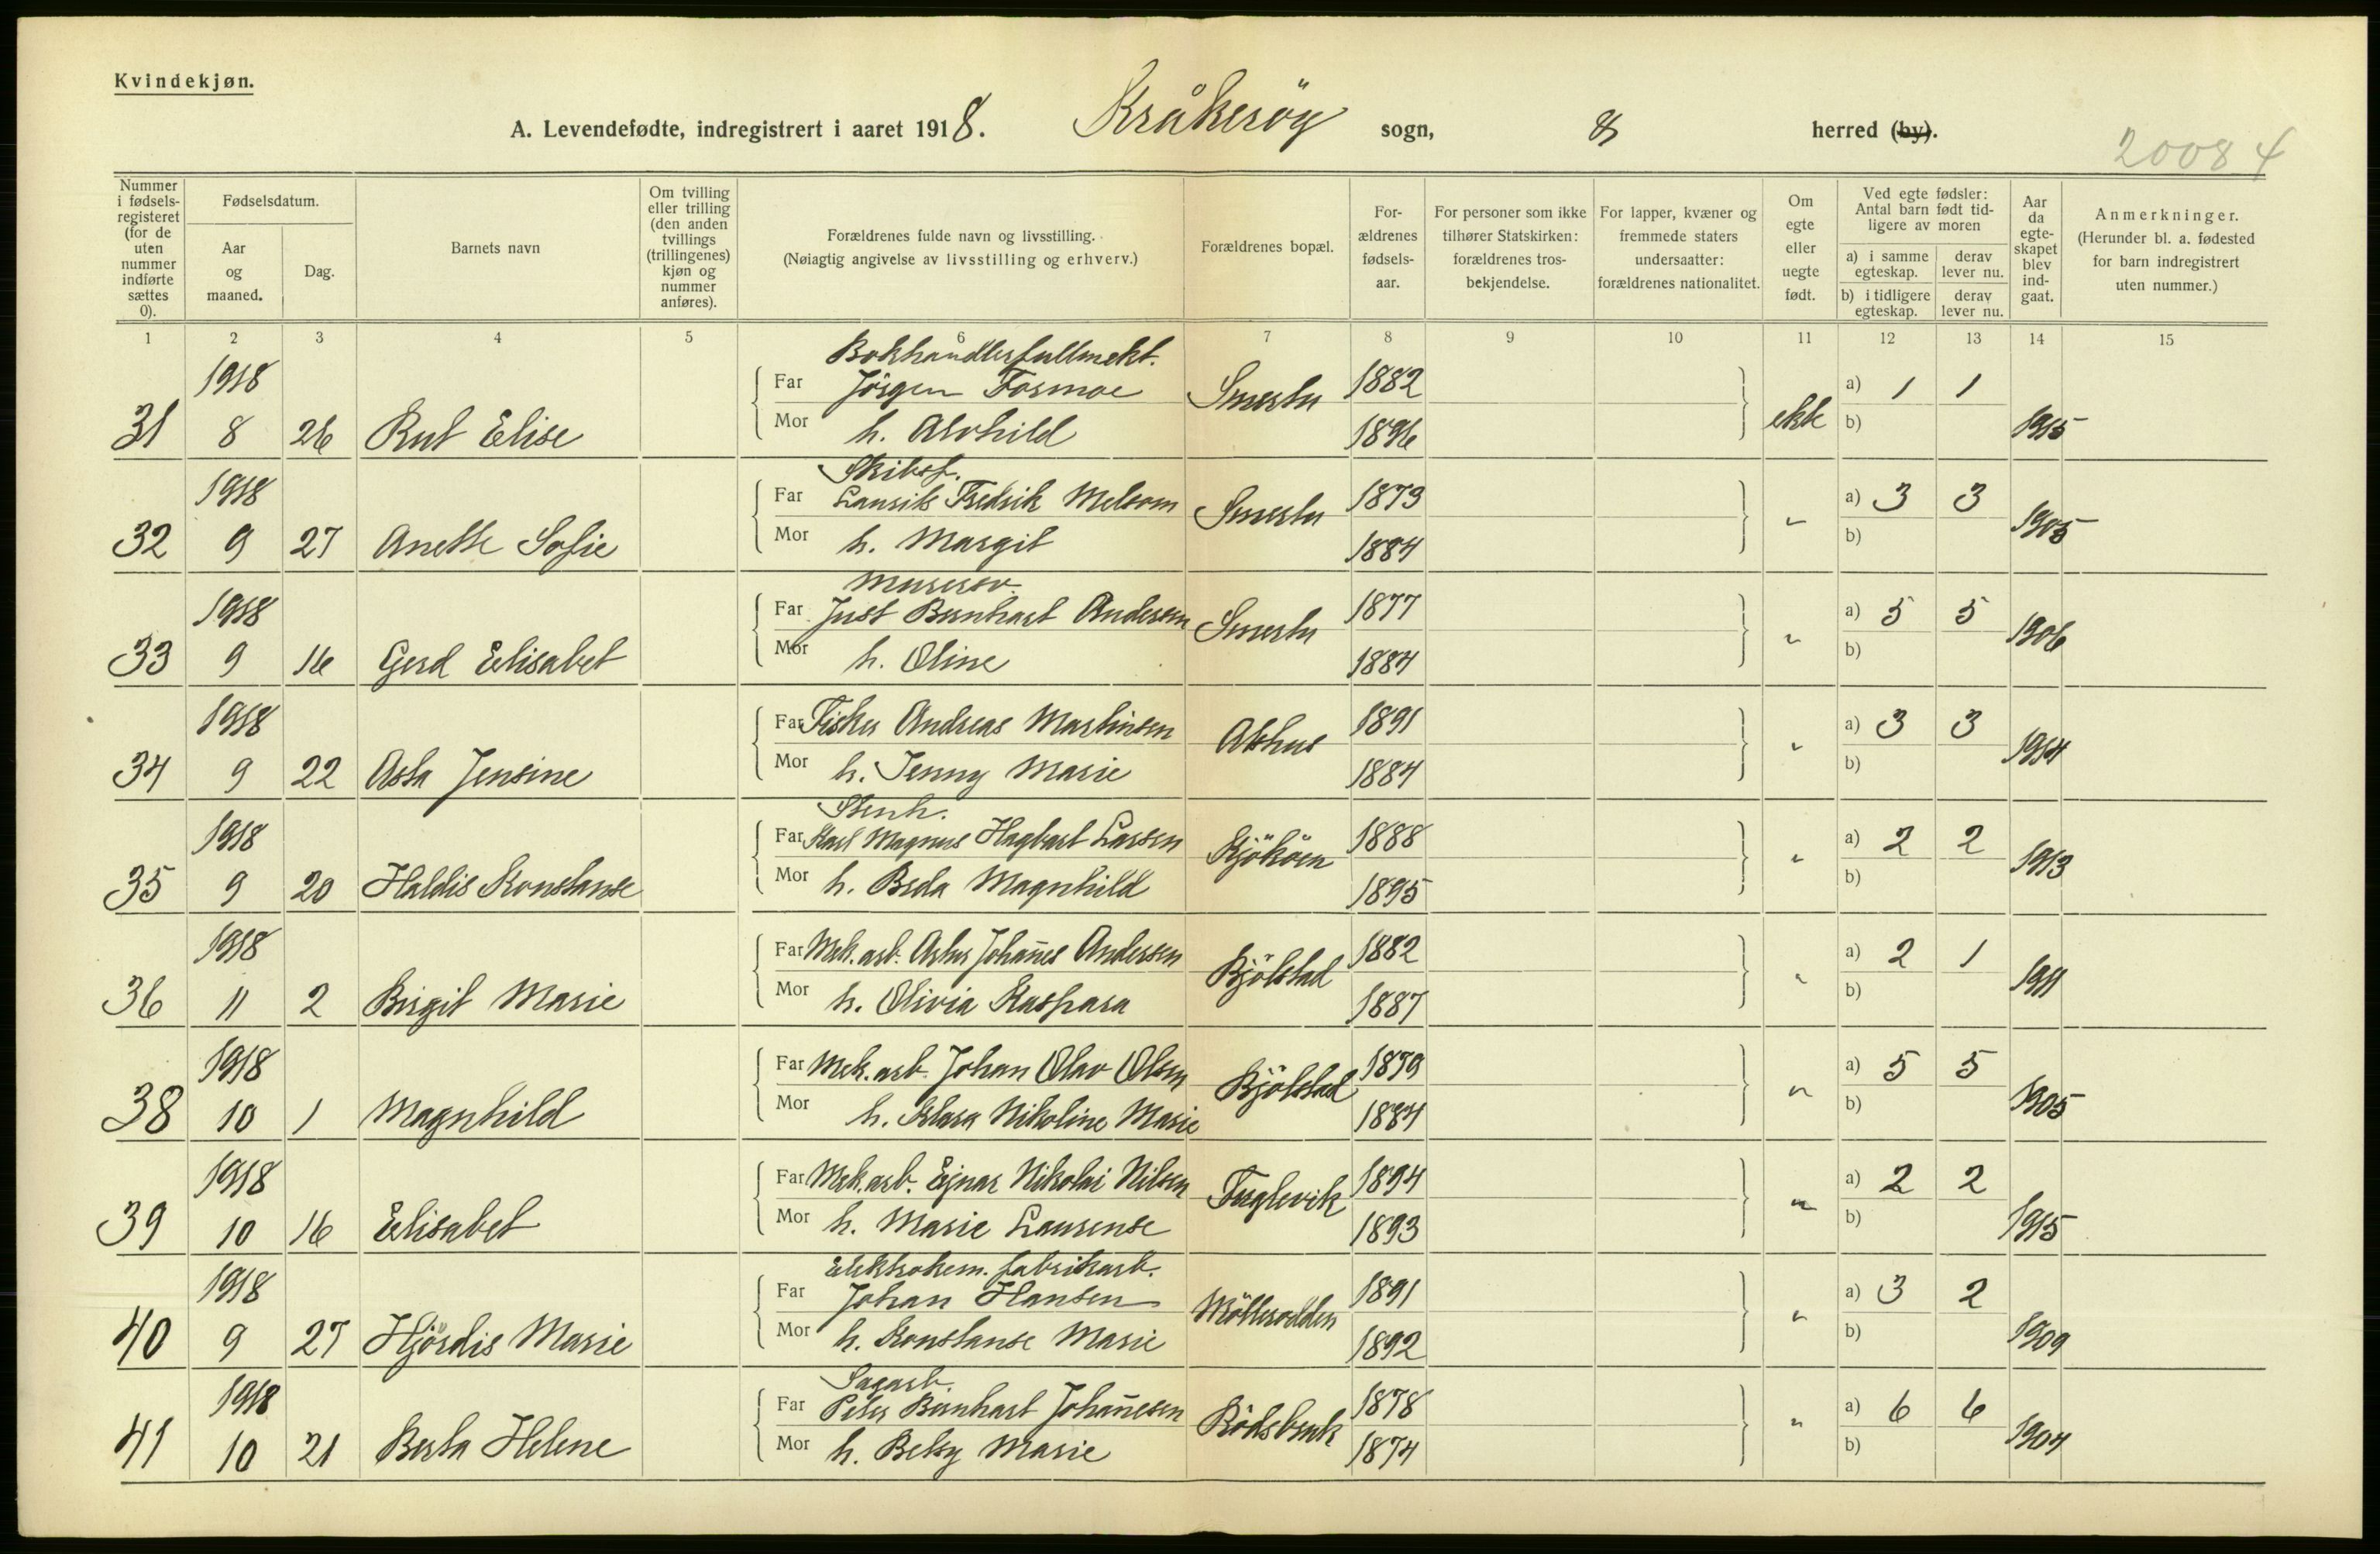 Kvindekjøn.
A. Levendefødte, indregistrert i aaret 1918. Kråkeröy sogn, & herred (by).
20084
Nummer i fødselsregisteret (for de uten nummer indførte sættes 0).
Fødselsdatum.
Aar og maaned.
Dag.
Barnets navn
Om tvilling eller trilling (den anden tvillings (trillingenes) kjøn og nummer anføres).
Forældrenes fulde navn og livsstilling.
(Nøiagtig angivelse av livsstilling og erhverv.)
Forældrenes bopæl.
Forældrenes fødselsaar.
For personer som ikke tilhører Statskirken: forældrenes trosbekjendelse.
For lapper, kvæner og fremmede staters undersaatter: forældrenes nationalitet.
Om egte eller uegte født.
Ved egte fødsler: Antal barn født tidligere av moren
a) i samme egteskap.
derav lever nu.
b) i tidligere egteskap.
derav lever nu.
Aar da egteskapet blev indgaat.
Anmerkninger.
(Herunder bl. a. fødested for barn indregistrert uten nummer.)
1 2 3 4 5 6 7 8 9 10 11 12 13 14 15
Bokhandlerfullmekt.
1918 Far Jörgen Formoe Smertu 1882 a) 1 1
31 8 26 Rut Elise Mor h. Alvhild 1896 ekte b) 1915
Skibsf.
1918 Far Laurits Fredrik Melsom Smertu 1873 a) 3 3
32 9 27 Anette Sofie Mor h. Margit 1884 " b) 1905
Murersv.
1918 Far Just Bernhart Andersen Smertu 1877 a) 5 5
33 9 16 Gerd Elisabet Mor h. Oline 1884 " b) 1906
1918 Far Fisker Andreas Martinsen Akhus 1891 a) 3 3
34 9 22 Asta Jensine Mor h. Jenny Marie 1884 " b) 1914
Stenh.
1918 Far Karl Magnus Hagbart Larsen Kjököen 1888 a) 2 2
35 9 20 Haldis Konstanse Mor h. Beda Magnhild 1895 " b) 1913
1918 Far Mek. arb. Artur Johañes Andersen Bjölstad 1882 a) 2 1
36 11 2 Birgit Marie Mor h. Olivia Kaspara 1887 " b) 1911
1918 Far Mek. arb. Johan Olav Olsen Bjölstad 1879 a) 5 5
38 10 1 Magnhild Mor h. Klara Nikoline Marie 1884 " b) 1905
1918 Far Mek. arb. Ejnar Nikolai Nilsen Fuglevik 1894 a) 2 2
39 10 16 Elisabet Mor h. Marie Laurense 1893 " b) 1915
Elektrokem. fabrikarb.
1918 Far Johan Hansen Möllerodden 1891 a) 3 2
40 9 27 Hjördis Marie Mor h. Konstanse Marie 1892 " b) 1909
Sagarb.
1918 Far Peter Bernhart Johañesen Rödsbrek 1878 a) 6 6
41 10 21 Berta Helene Mor h. Betsy Marie 1874 " b) 1904